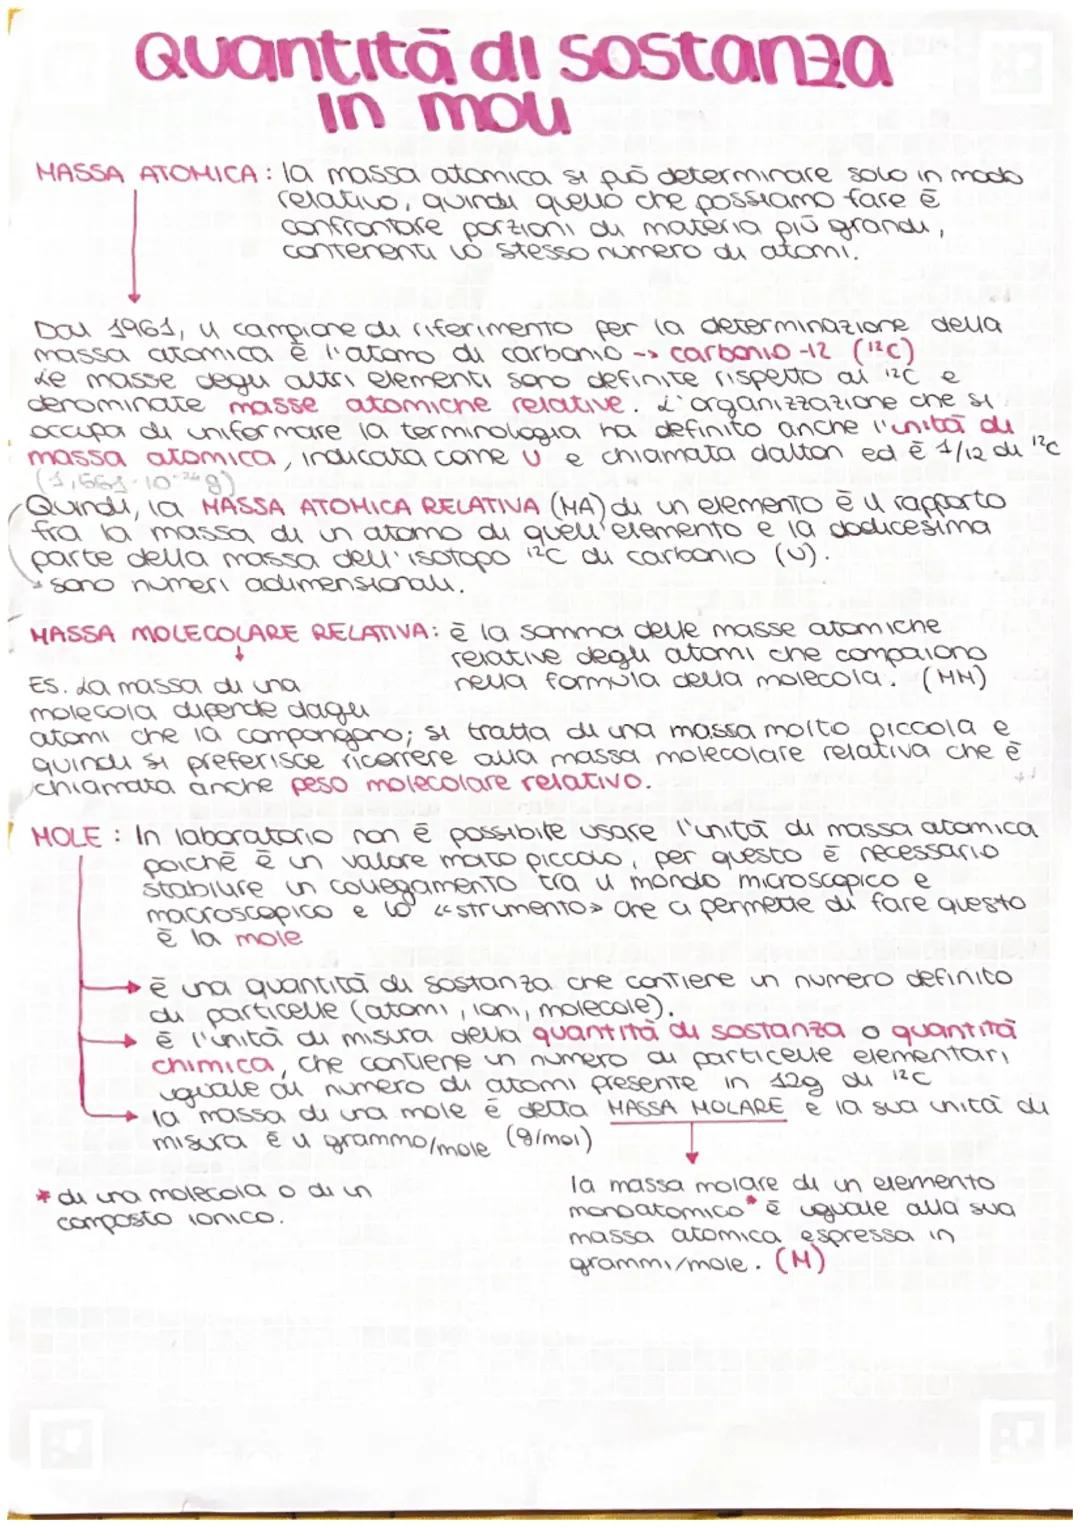 Quantità di sostanza
in moli
MASSA ATOMICA: la massa atomica si può determinare solo in modo
relativo, quindi quello che possiamo fare è
confrontare porzioni di materia più grandi,
contenenti lo stesso numero di atomi.
Dal 1961, il campione di riferimento per la determinazione della
massa atomica è l'atomo di carbonio -> carbonio-12 (¹²C)
Le masse degli altri elementi sono definite rispetto al ¹²C e
denominate masse atomiche relative. L'organizzazione che si
occupa di uniformare la terminologia ha definito anche l'unità di
massa atomica, indicata come u e chiamata dalton ed è 1/12 di ¹²C
(1,661·10⁻²⁴g)
Quindi, la MASSA ATOMICA RELATIVA (MA) di un elemento è il rapporto
fra la massa di un atomo di quell'elemento e la dodicesima
parte della massa dell'isotopo ¹²C di carbonio (u).
sono numeri adimensionali.
MASSA MOLECOLARE RELATIVA: è la somma delle masse atomiche
relative degli atomi che compaiono
nella formula della molecola. (MM)
ES. La massa di una
molecola dipende dagli
atomi che la compongono; si tratta di una massa molto piccola e
quindi si preferisce ricorrere alla massa molecolare relativa che è
chiamata anche peso molecolare relativo.
MOLE: In laboratorio non è possibile usare l'unità di massa atomica
poichè è un valore molto piccolo, per questo è necessario
stabilire un collegamento tra il mondo microscopico e
macroscopico e lo «strumento» che ci permette di fare questo
è la mole
è una quantità di sostanza che contiene un numero definito
di particelle (atomi, ioni, molecole).
è l'unità di misura della quantità di sostanza o quantità
chimica, che contiene un numero di particelle elementari
uguale al numero di atomi presente in 12g di ¹²C
la massa di una mole è detta MASSA MOLARE e la sua unità di
misura è il grammo/mole (g/mol)
la massa molare di un elemento
monoatomico* è uguale alla sua
massa atomica espressa in
grammi/mole. (M)
* di una molecola o di un
composto ionico.